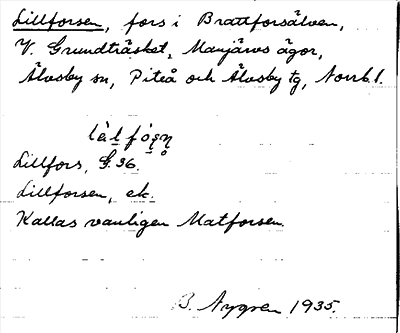 Lillforsen, fors i Brattforsälven,
V. Grundträsket, Manjärvs ägor,
Älvsby sn, Piteå och Älvsby tg, Norrb. l.
Lillfors, G. 36.
Lillforsen, ek.
Kallas vanligen Matforsen.
B. Nygren 1935.